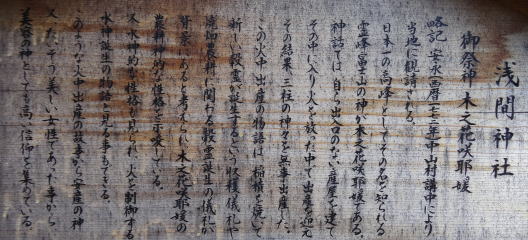 浅間神社
御祭神 木之花咲耶媛
略記 安永(西暦一七七三)年中山村講中により
当地に勧請される。
日本一の高峰としてその名を知られる
霊峰富士山の神が木之花咲耶媛である。
神話では、自ら出口のない産屋を建て
その中に入り火を放った中で出産を迎え
その結果、三柱の神々を無事出産した。
この火中出産の物語は、稲積を焼いて
新しい穀霊が誕生するという収穫儀礼や
焼畑農耕に関わる穀霊誕生の儀礼が
背景にあると考えられ、木之花咲耶媛の
農耕神的な性格を示唆している。
又、水神的な性格も見られ、火を制御する
水神誕生の物語と見る事もできる。
このような火中出産の故事から安産の神
又、たいそう美しい女性であった事から
美容の神としても高い信仰を集めている。